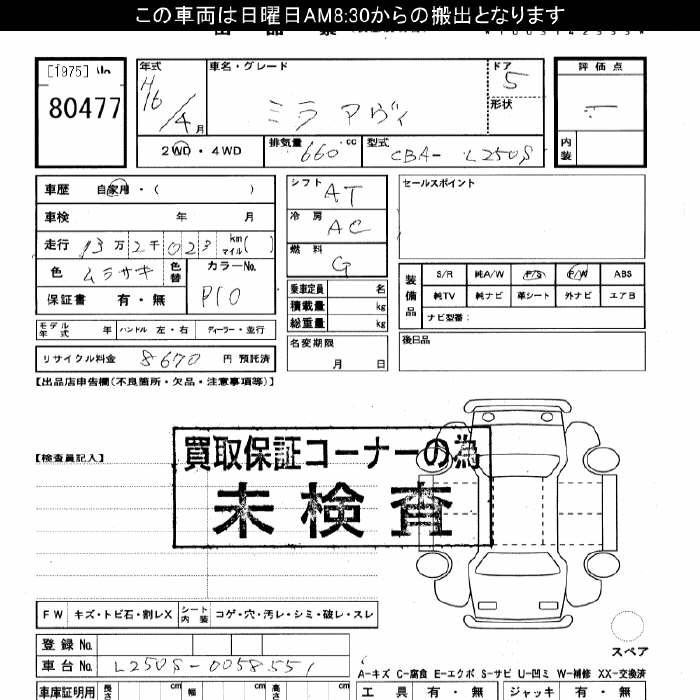 この車両は日曜日AM8:30からの搬出となります
[1975]
80477
年式 車名・グレード ドア 評価点
H16/4月 ミラ アヴィ 5
形状
2WD・4WD 排気量 660 cc 型式 CBA-L250S 内装
車歴 自家用・( ) シフト AT セールスポイント
車検 年 月 冷房 AC
走行 13万2千023 km マイル( ) 燃料 G
色 ムラサキ 色替 カラーNo. P10
保証書 有・無
乗車定員 名
積載量 kg
総重量 kg
装備品 S/R 純A/W P/S P/W ABS
純TV 純ナビ 革シート 外ナビ エアB
ナビ型番:
モデル年式 年 ハンドル 左・右 ディーラー・並行 名変期限 月 日 後日品
リサイクル料金 8670 円 預託済
【出品店申告欄(不良箇所・欠品・注意事項等)】
【検査員記入】
買取保証コーナーの為
未検査
FW キズ・トビ石・割レX シート内装 コゲ・穴・汚レ・シミ・破レ・スレ
スペア
登録No.
車台No. L250S-0058551
A-キズ C-腐食 E-エクボ S-サビ U-凹ミ W-補修 XX-交換済
車庫証明用 長さ cm 幅 cm 高さ cm 工具 有・無 ジャッキ 有・無